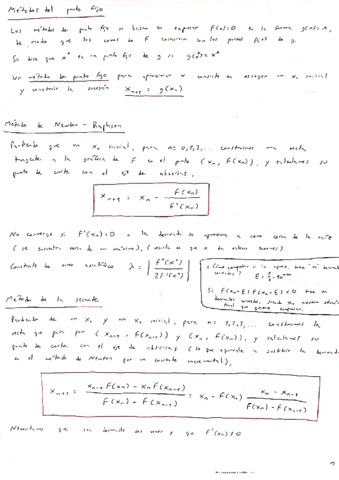 Métodos del punto fijo
Los métodos de punto fijo se basan en expresar F(x)=0 en la forma g(x)=x,
de modo que los ceros de F coincidan con los puntos fijos de g.
Se dice que x* es un punto fijo de g si g(x*)=x*
Un método de punto fijo para aproximar x consiste en escoger un x₀ inicial
y construir la sucesión xₙ₊₁ = g(xₙ)
Método de Newton-Raphson
Partiendo de un x₀ inicial, para n=0,1,2,... construimos una recta
tangente a la gráfica de F en el punto (xₙ, F(xₙ)), y calculamos su
punto de corte con el eje de abscisas,
xₙ₊₁ = xₙ - F(xₙ) / F'(xₙ)
No converge si F'(xₙ)=0 o la derivada se aproxima a cero cerca de la raíz
(se encuentra cerca de un máximo),
Constante de error asintótico λ = | F''(x*) / 2F'(x*) |
Si F(xₙ-ε)·F(xₙ+ε) < 0
Método de la secante
Partiendo de un x₀ y un x₁ inicial, para n=1,2,3,... construimos la
recta que pasa por (xₙ₋₁, F(xₙ₋₁)) y (xₙ, F(xₙ)), y calculamos su
punto de corte con el eje de abscisas (lo que equivale a sustituir la derivada
en el método de Newton por un cociente incremental),
xₙ₊₁ = (xₙ₋₁F(xₙ) - xₙF(xₙ₋₁)) / (F(xₙ) - F(xₙ₋₁)) = xₙ - F(xₙ) (xₙ - xₙ₋₁) / (F(xₙ) - F(xₙ₋₁))
Necesitamos que sea derivable dos veces y que F'(x) ≠ 0